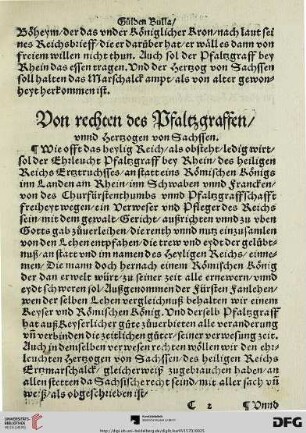 Gülden Bulla/
Böheym/ der das vnder Königlicher Kron/ nach laut sei
nes Reichsbrieff/ die er darüber hat/ er wäll es dann von
freiem willen nicht thun. Auch sol der Pfaltzgraff bey
Rhein das essen tragen. Vnd der Hertzog von Sachssen
soll halten das Marschalck ampt/ als von alter gewon-
heyt herkommen ist.
Von rechten des Pfaltzgraffen/
vnnd Hertzogen von Sachssen.
¶ Wie offt das heylig Reich/ als obsteht/ ledig wirt/
sol der Ehrleucht Pfaltzgraff bey Rhein/ des heiligen
Reichs Ertztruchses/ an statt eins Römischen Königs
inn Landen am Rhein/ im Schwaben vnnd Francken/
von des Churfürstenthumbs vnnd Pfaltzgraffschafft
freiheyt wegen/ ein Verweser vnd Pfleger des Reichs
sein/ mit den gewalt Gericht/ außrichten vnnd zu vber
Gotts gab zuuerleihen/ die renth vnnd nutz einzusamlen
von den Lehen entpfahen/ die trew vnd eydt der gelübt-
nuß/ an statt vnd im namen des Heyligen Reichs/ einne-
men. Die mann doch hernach einem Römischen König
der dan erwelt würt/ zu seiner zeit alle ernewern/ vnnd
eydt schweren sol/ Außgenommen der Fürsten Fanlehen/
wen der selben Lehen vergleichnuß behalten wir einem
Keyser vnd Römischen König. Vnd der selb Pfaltzgraff
hat auß Keyserlicher güte zuuerbieten alle veranderung
vñ verbinden die zeitlichen güter/ seiner verwesung zeit.
Auch in demselben verweser rechten wöllen wir den ehr-
leuchten Hertzogen von Sachssen/ des heiligen Reichs
Ertzmarschalck/ gleicherweiß zugebrauchen haben/ an
allen stetten da Sächsische recht send/ mit aller sach vñ
weiß/ als obgeschrieben ist/
C 2 ¶ Vnnd
UNIVERSITÄTS-
BIBLIOTHEK
HEIDELBERG
DFG